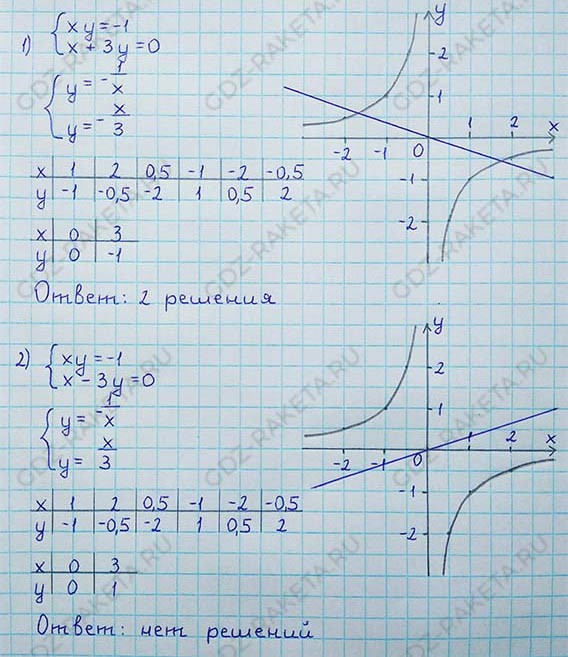 1) { xy = -1
x + 3y = 0
{ y = -1/x
y = -x/3
x | 1 | 2 | 0,5 | -1 | -2 | -0,5
y | -1 | -0,5 | -2 | 1 | 0,5 | 2
x | 0 | 3
y | 0 | -1
Ответ: 2 решения
y
2
1
-2 -1 0 1 2 x
-1
-2
2) { xy = -1
x - 3y = 0
{ y = -1/x
y = x/3
x | 1 | 2 | 0,5 | -1 | -2 | -0,5
y | -1 | -0,5 | -2 | 1 | 0,5 | 2
x | 0 | 3
y | 0 | 1
Ответ: нет решений
y
2
1
-2 -1 0 1 2 x
-1
-2
GDZ-RAKETA.RU